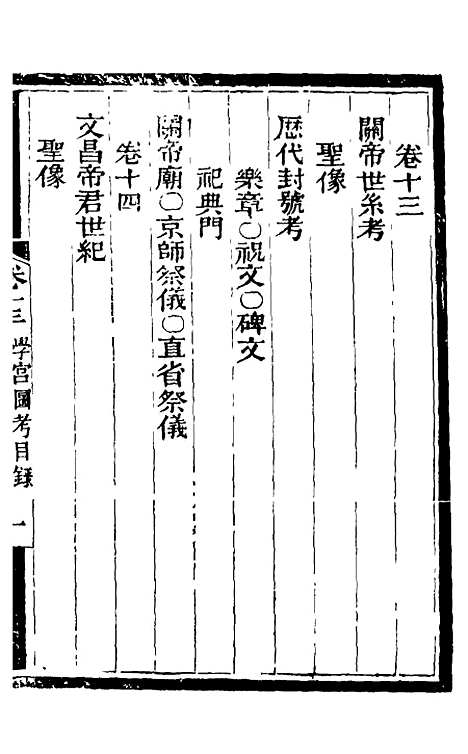 卷十三
關帝世系考
聖像
歷代封號考
樂章〇祝文〇碑文
祀典門
關帝廟〇京師祭儀〇直省祭儀
卷十四
文昌帝君世紀
聖像
卷十三 學宮圖考目錄 一